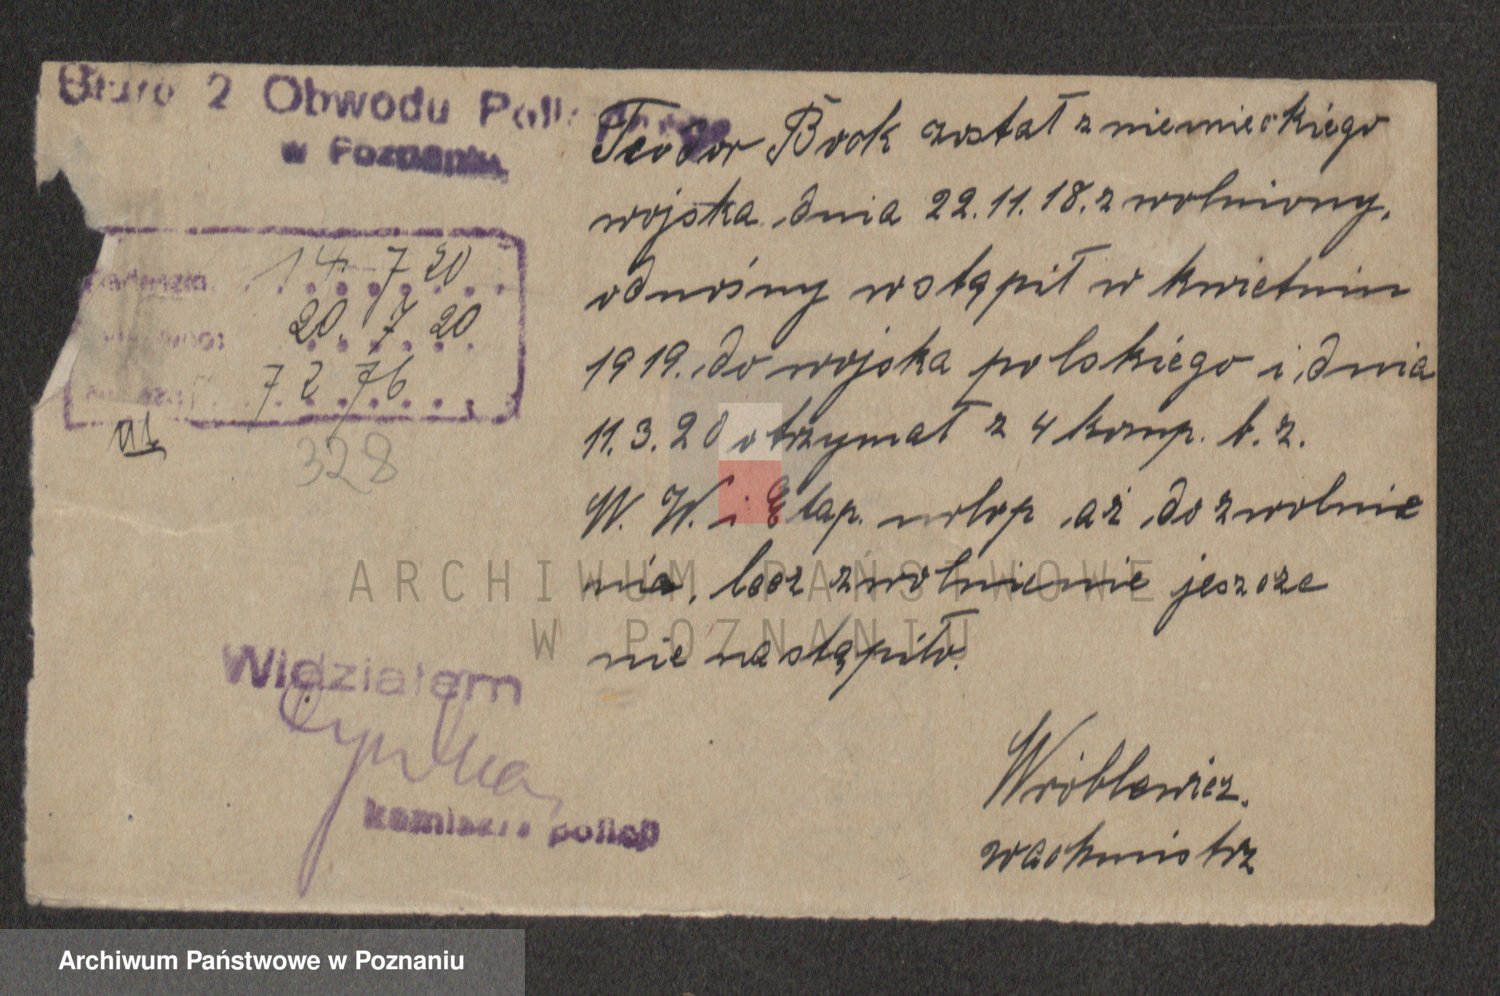 Biuro 2 Obwodu
w Poznaniu
14 7 20
20. 7 20
72 76
328
Teodor Bock został z niemieckiego
wojska dnia 22.11.18. zwolniony,
odnośny wstąpił w kwietniu
1919. do wojska polskiego i dnia
11.3.20 otrzymał z 4 komp. b. z.
W. W. i Etap. urlop aż do zwolnie
nia, lecz zwolnienie jeszcze
nie nastąpiło.
Widziałem
komisarz policji
Wróblewicz.
wachmistrz
ARCHIWUM PAŃSTWOWE
W POZNANIU
Archiwum Państwowe w Poznaniu